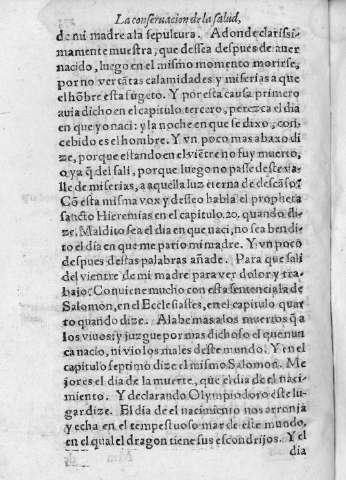 La conseruacion de la salud,
de mi madre a la sepultura. Adonde clarissi-
mamente muestra, que dessea despues de auer
nacido, luego en el mismo momento morirse,
por no ver tātas calamidades y miserias a que
el hōbre esta sugeto. Y por esta causa primero
auia dicho en el capitulo tercero, perezca el dia
en que yo naci: y la noche en que se dixo, con-
cebido es el hombre. Y vn poco mas abaxo di-
ze, porque estando en el viētre no fuy muerto,
o ya q̄ del sali, porque luego no passe deste va-
lle de miserias, a aquella luz eterna de descāso?
Cō esta misma vox y desseo habla el propheta
sancto Hieremias en el capitulo.20. quando di-
ze, Maldito sea el dia en que naci, no sea bendi-
to el dia en que me pario mi madre. Y vn poco
despues destas palabras añade. Para que sali
del vientre de mi madre para ver dolor y tra-
bajo: Conuiene mucho con esta sentencia la de
Salomon, en el Ecclesiastes, en el capitulo quar
to quando dize. Alabe mas a los muertos q̄ a
los viuos: y juzgue por mas dichoso el que nun
ca nacio, ni vio los males deste mundo. Y en el
capitulo septimo dize el mismo Salomon. Me
jor es el dia de la muerte, que el dia de el naci-
miento. Y declarando Olympiodoro este lu-
gar dize. El dia de el nacimiento nos arronja
y echa en el tempestuoso mar de este mundo,
en el qual el dragon tiene sus escondrijos. Y el
dia